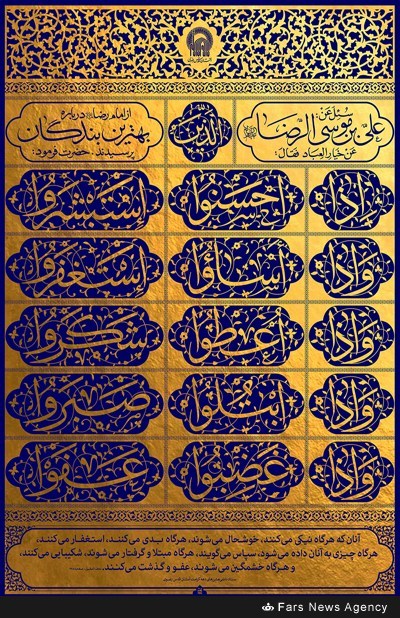 سُئِلَ عَن:
عَلِيِّ بنِ مُوسَى الرِّضَا
عَن خِيَارِ العِبَادِ فَقَالَ:
اَلَّذِینَ
از امام رضا درباره
بهترین بندگان
پرسیدند، حضرت فرمود:
إِذَا أَحسَنُوا اِستَبشَرُوا
وَإِذَا أَسَاؤُا اِستَغفَرُوا
وَإِذَا أُعطُوا شَكَرُوا
وَإِذَا ابتُلُوا صَبَرُوا
وَإِذَا غَضِبُوا عَفَوا
آنان که هرگاه نیکی می‌کنند، خوشحال می‌شوند، هرگاه بدی می‌کنند، استغفار می‌کنند،
هرگاه چیزی به آنان داده می‌شود، سپاس می‌گویند، هرگاه مبتلا و گرفتار می‌شوند، شکیبایی می‌کنند
و هرگاه خشمگین می‌شوند، عفو و گذشت می‌کنند.
Fars News Agency